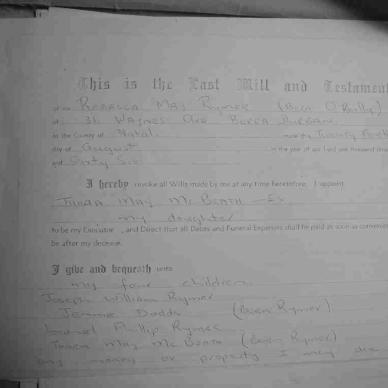 This is the Last Will and Testament
of me Rebecca May Rymer (Born O'Reilly)
of 31 Waynes Ave Berea Durban
in the County of Natal made this Twenty
day of August in the year of our Lord one thousand
and Sixty Six
I hereby revoke all Wills made by me at any time heretofore. I appoint
May Mc Beath
my daughter
to be my Executor , and Direct that all Debts and Funeral Expenses shall be paid as soon as
be after my decease.
I give and bequeath unto
my four children
Joseph William Rymer
Jennie Dodds (Born Rymer)
Phillip Rymer
May Mc Beath (Born Rymer)
any money or property I may